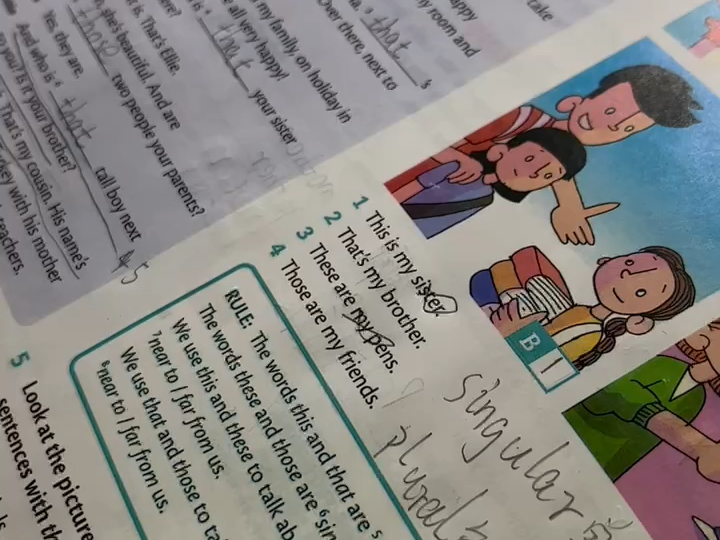 take
happy
my room and
that 's
Over there, next to
my family, on holiday in
e all very happy!
that your sister
it is. That's Ellie.
she's beautiful. And are
those two people your parents?
Yes, they are.
And who is that tall boy next
to you? Is it your brother?
That's my cousin. His name's
with his mother
teachers.
5
1 This is my sister.
2 That's my brother.
3 These are my pens.
4 Those are my friends.
B 1
singular
plural
RULE: The words this and that are 5
The words these and those are 6 sin
We use this and these to talk ab
7 near to / far from us.
We use that and those to ta
8 near to / far from us.
5 Look at the picture
sentences with th